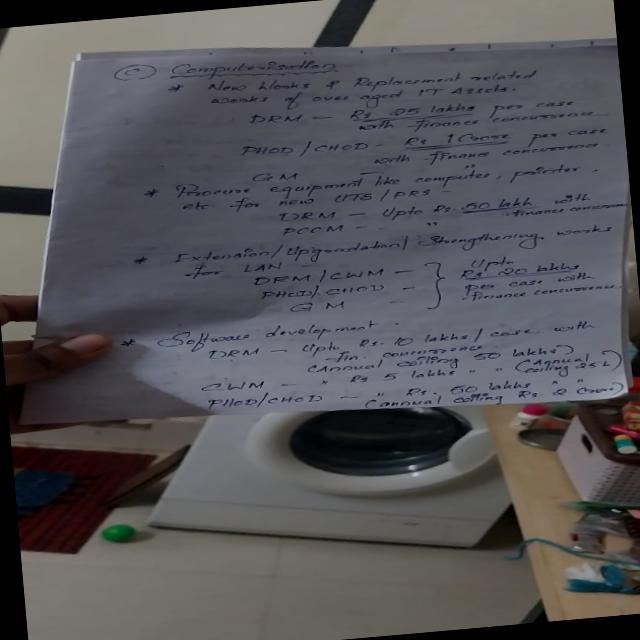 Computerisation
* New works & Replacement related
works of over aged IT Assets.
DRM - Rs 25 lakhs per case
with finance concurrence
PHOD/CHOD - Rs 1 Crore per case
with finance concurrence
GM
* Procure equipment like computer, printer.
etc for new UTS/PRS -
DRM - Upto Rs. 50 lakh with
finance concurrence
PCCM - "
* Extension/Upgradation/Strengthening works
for LAN
DRM/CWM - Upto
PHOD/CHOD - Rs 20 lakhs
GM per case with
finance concurrence
* Software development.
DRM - Upto Rs. 10 lakhs/case with
fin. concurrence
(Annual ceiling 50 lakhs)
CWM - " Rs 5 lakhs " " (Annual
ceiling 25 L)
PHOD/CHOD - " Rs. 50 lakhs " "
(annual ceiling Rs. 2 Crore)